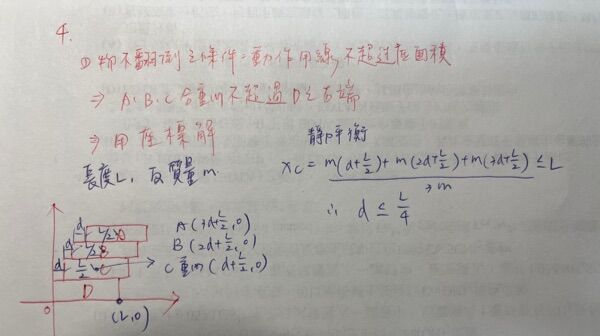 4.
① 物不翻倒之條件=重力作用線,不超過底面積
⇒ A、B、C合重心不超過D之右端
⇒ 用座標解
靜力平衡
長度L,設質量m.
x_C = (m(d+L/2)+m(2d+L/2)+m(3d+L/2))/3m ≤ L
∴ d ≤ L/4
A (3d+L/2,0)
B (2d+L/2,0)
C重心(d+L/2,0)
d L/2 A
d L/2 B
d L/2 C
D
0 (L,0)